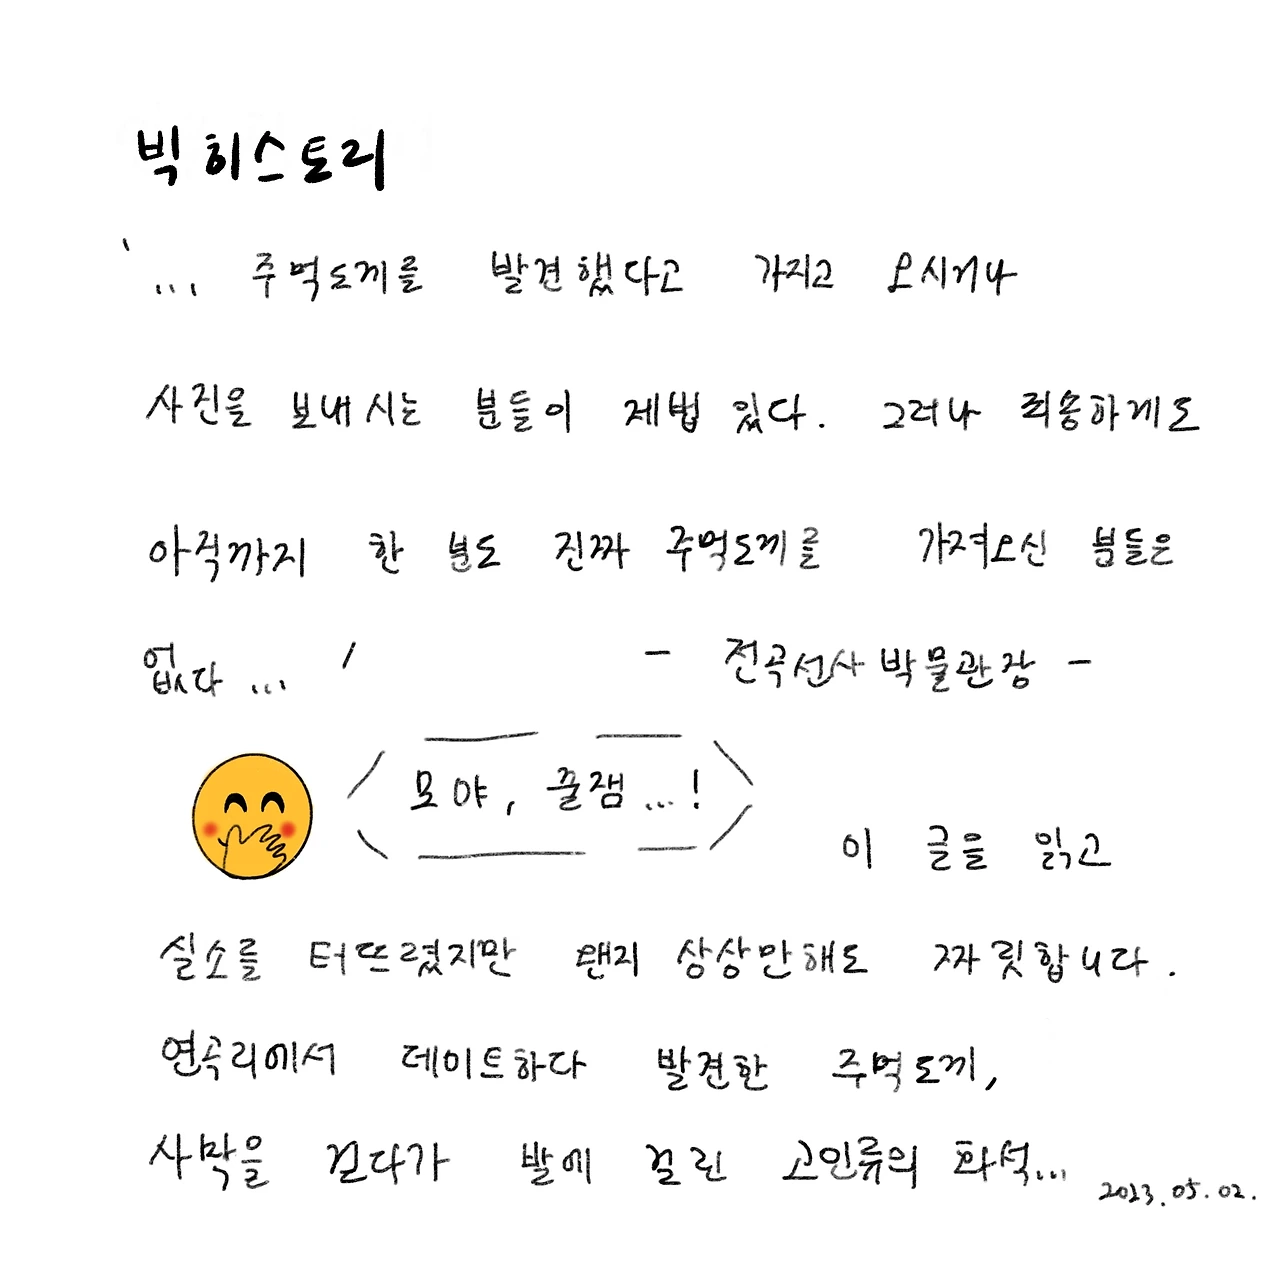 빅 히스토리
' ... 주먹도끼를 발견했다고 가지고 오시거나
사진을 보내시는 분들이 제법 있다. 그러나 죄송하게도
아직까지 한 분도 진짜 주먹도끼를 가져오신 분들은
없다 ... ' - 전곡선사 박물관장 -
모야, 꿀잼 ... !
이 글을 읽고
실소를 터뜨렸지만 왠지 상상만해도 짜릿합니다.
연곡리에서 데이트하다 발견한 주먹도끼,
사막을 걷다가 발에 걸린 고인류의 화석...
2023.05.02.